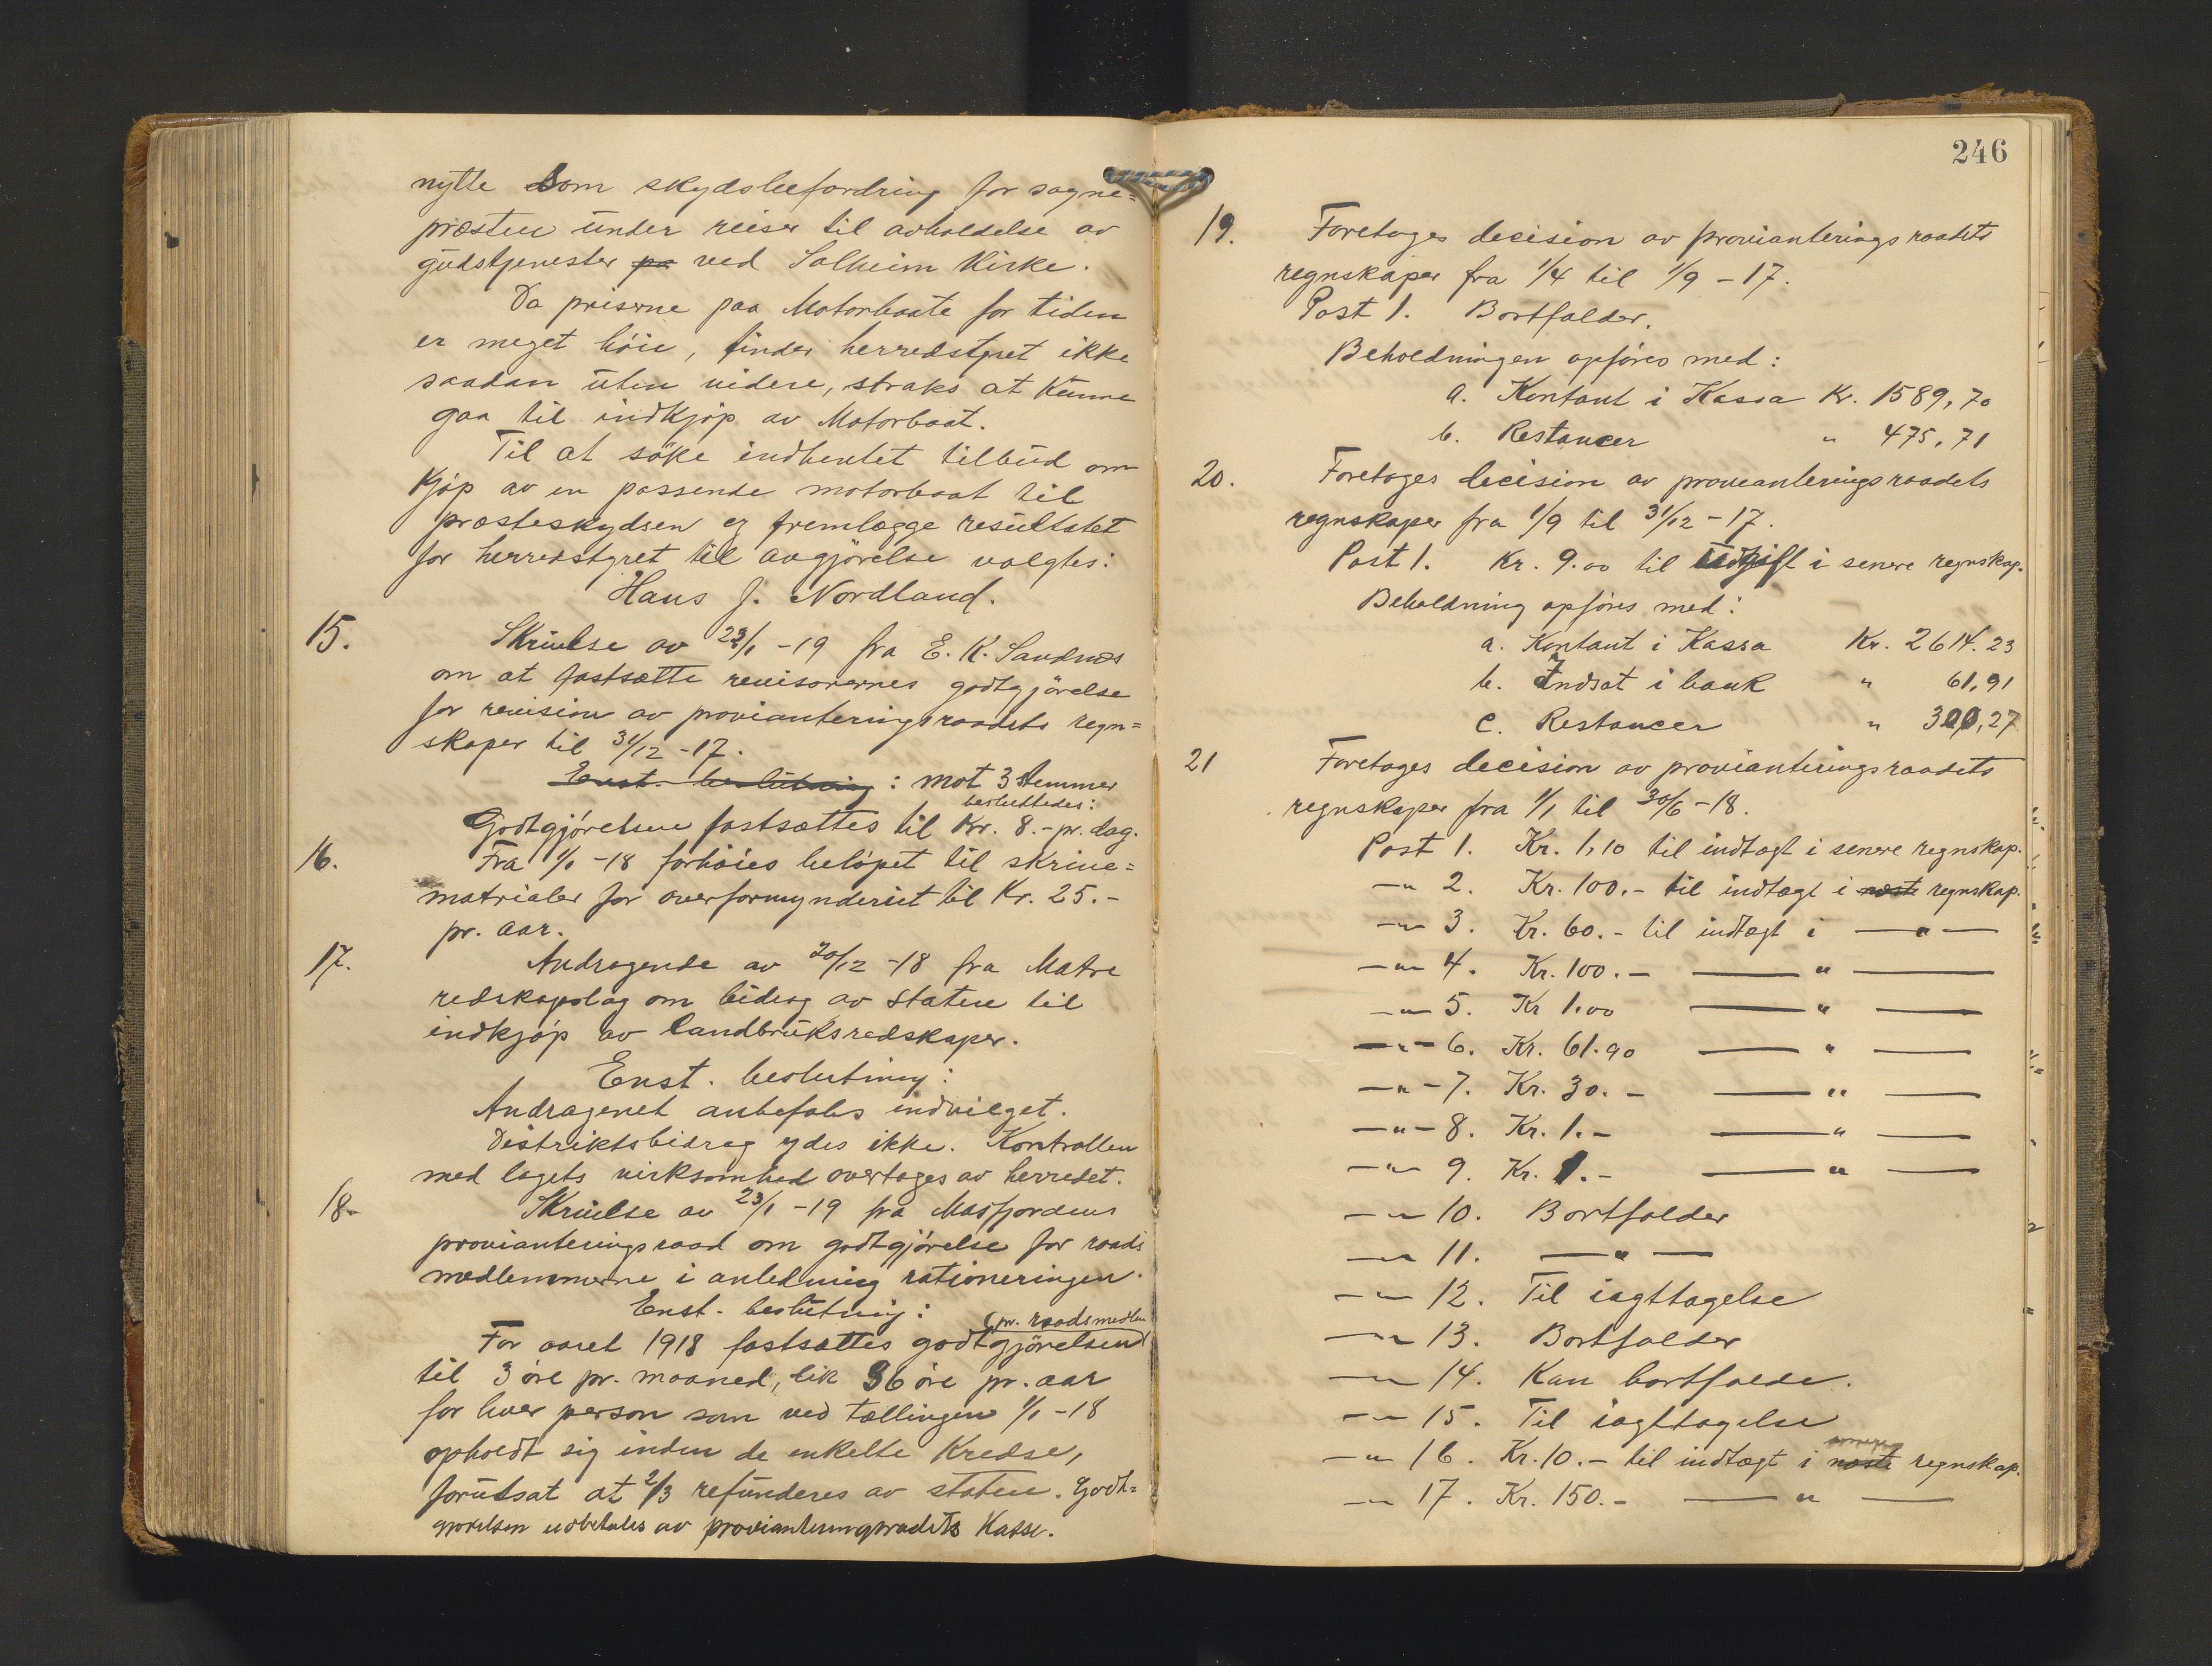 nytte som skydsbefordring for sogne=
præsten under reiser til avholdelse av
gudstjenester pa ved Solheim Kirke.
Da priserne paa Motorbaate for tiden
er meget høie, finder herredstyret ikke
saadan uten videre, straks at kunne
gaa til indkjøp av Motorbaat.
Til at søke indhentet tilbud om
kjøp av en passende motorbaat til
præsteskydsen og fremlægge resultatet
for herredstyret til avgjörelse valgtes:
Hans J. Nordland.
15. Skrivelse av 23/1 -19 fra E. K. Sandnes
om at fastsætte revisorernes godtgjörelse
for revision av provianteringsraadets regn=
skaper til 31/12 -17.
Enst. beslutning: mot 3 stemmer
besluttedes:
Godtgjörelsen fastsættes til Kr. 8.- pr. dag.
16. Fra 1/1 -18 forhöies belöpet til skrive=
matrialer for overformynderiet til Kr. 25.-
pr. aar.
17. Andragende av 20/12 -18 fra Matre
redskapslag om bidrag av staten til
indkjøp av landbruksredskaper.
Enst. beslutning:
Andragenet anbefales indvilget.
Distriktsbidrag ydes ikke. Kontrollen
med lagets virksomhed overtages av herredet.
18. Skrivelse av 23/1 -19 fra Masfjordens
provianteringsraad om godtgjörelse for raads
medlemmerne i anledning rationeringen.
Enst. beslutning:
(pr. raadsmedlem
For aaret 1918 fastsættes godtgjörelsen
til 3 öre pr. maaned, lik 36 öre pr. aar
for hver person som ved tællingen 1/1 -18
opholdt sig inden de enkelte Kredse,
forutsat at 2/3 refunderes av staten. Godt=
gjörelsen udbetales av provianteringsradets Kasse.
246
19. Foretages decision av provianteringsraadets
regnskaper fra 1/4 til 1/9 -17.
Post 1. Bortfalder.
Beholdningen opföres med:
a. Kontant i Kassa Kr. 1589,70
b. Restancer " 475,71
20. Foretages decision av provianteringsraadets
regnskaper fra 1/9 til 31/12 -17.
Post 1. Kr. 9.00 til Udgift i senere regnskap.
Beholdning opföres med:
a. Kontant i Kassa Kr. 2614.23
b. Indsat i bank " 61,91
c. Restancer " 300,27
21 Foretages decision av provianteringsraadets
regnskaper fra 1/1 til 30/6 -18.
Post 1. Kr. 1,10 til indtægt i senere regnskap.
—"— 2. Kr. 100.- til indtægt i næste regnskap.
—"— 3. Kr. 60.- til indtægt i — " —
—"— 4. Kr. 100.- — " —
—"— 5. Kr 1.00 — " —
—"— 6. Kr. 61.90 — " —
—"— 7. Kr. 30.- — " —
—"— 8. Kr. 1.- — " —
—"— 9. Kr. 1.- — " —
—"— 10. Bortfalder
—"— 11. — " —
—"— 12. Til iagttagelse
—"— 13. Bortfalder
—"— 14. Kan bortfalde.
—"— 15. Til iagttagelse
senere
—"— 16. Kr. 10.- til indtægt i næste regnskap.
—"— 17. Kr. 150.- — " —